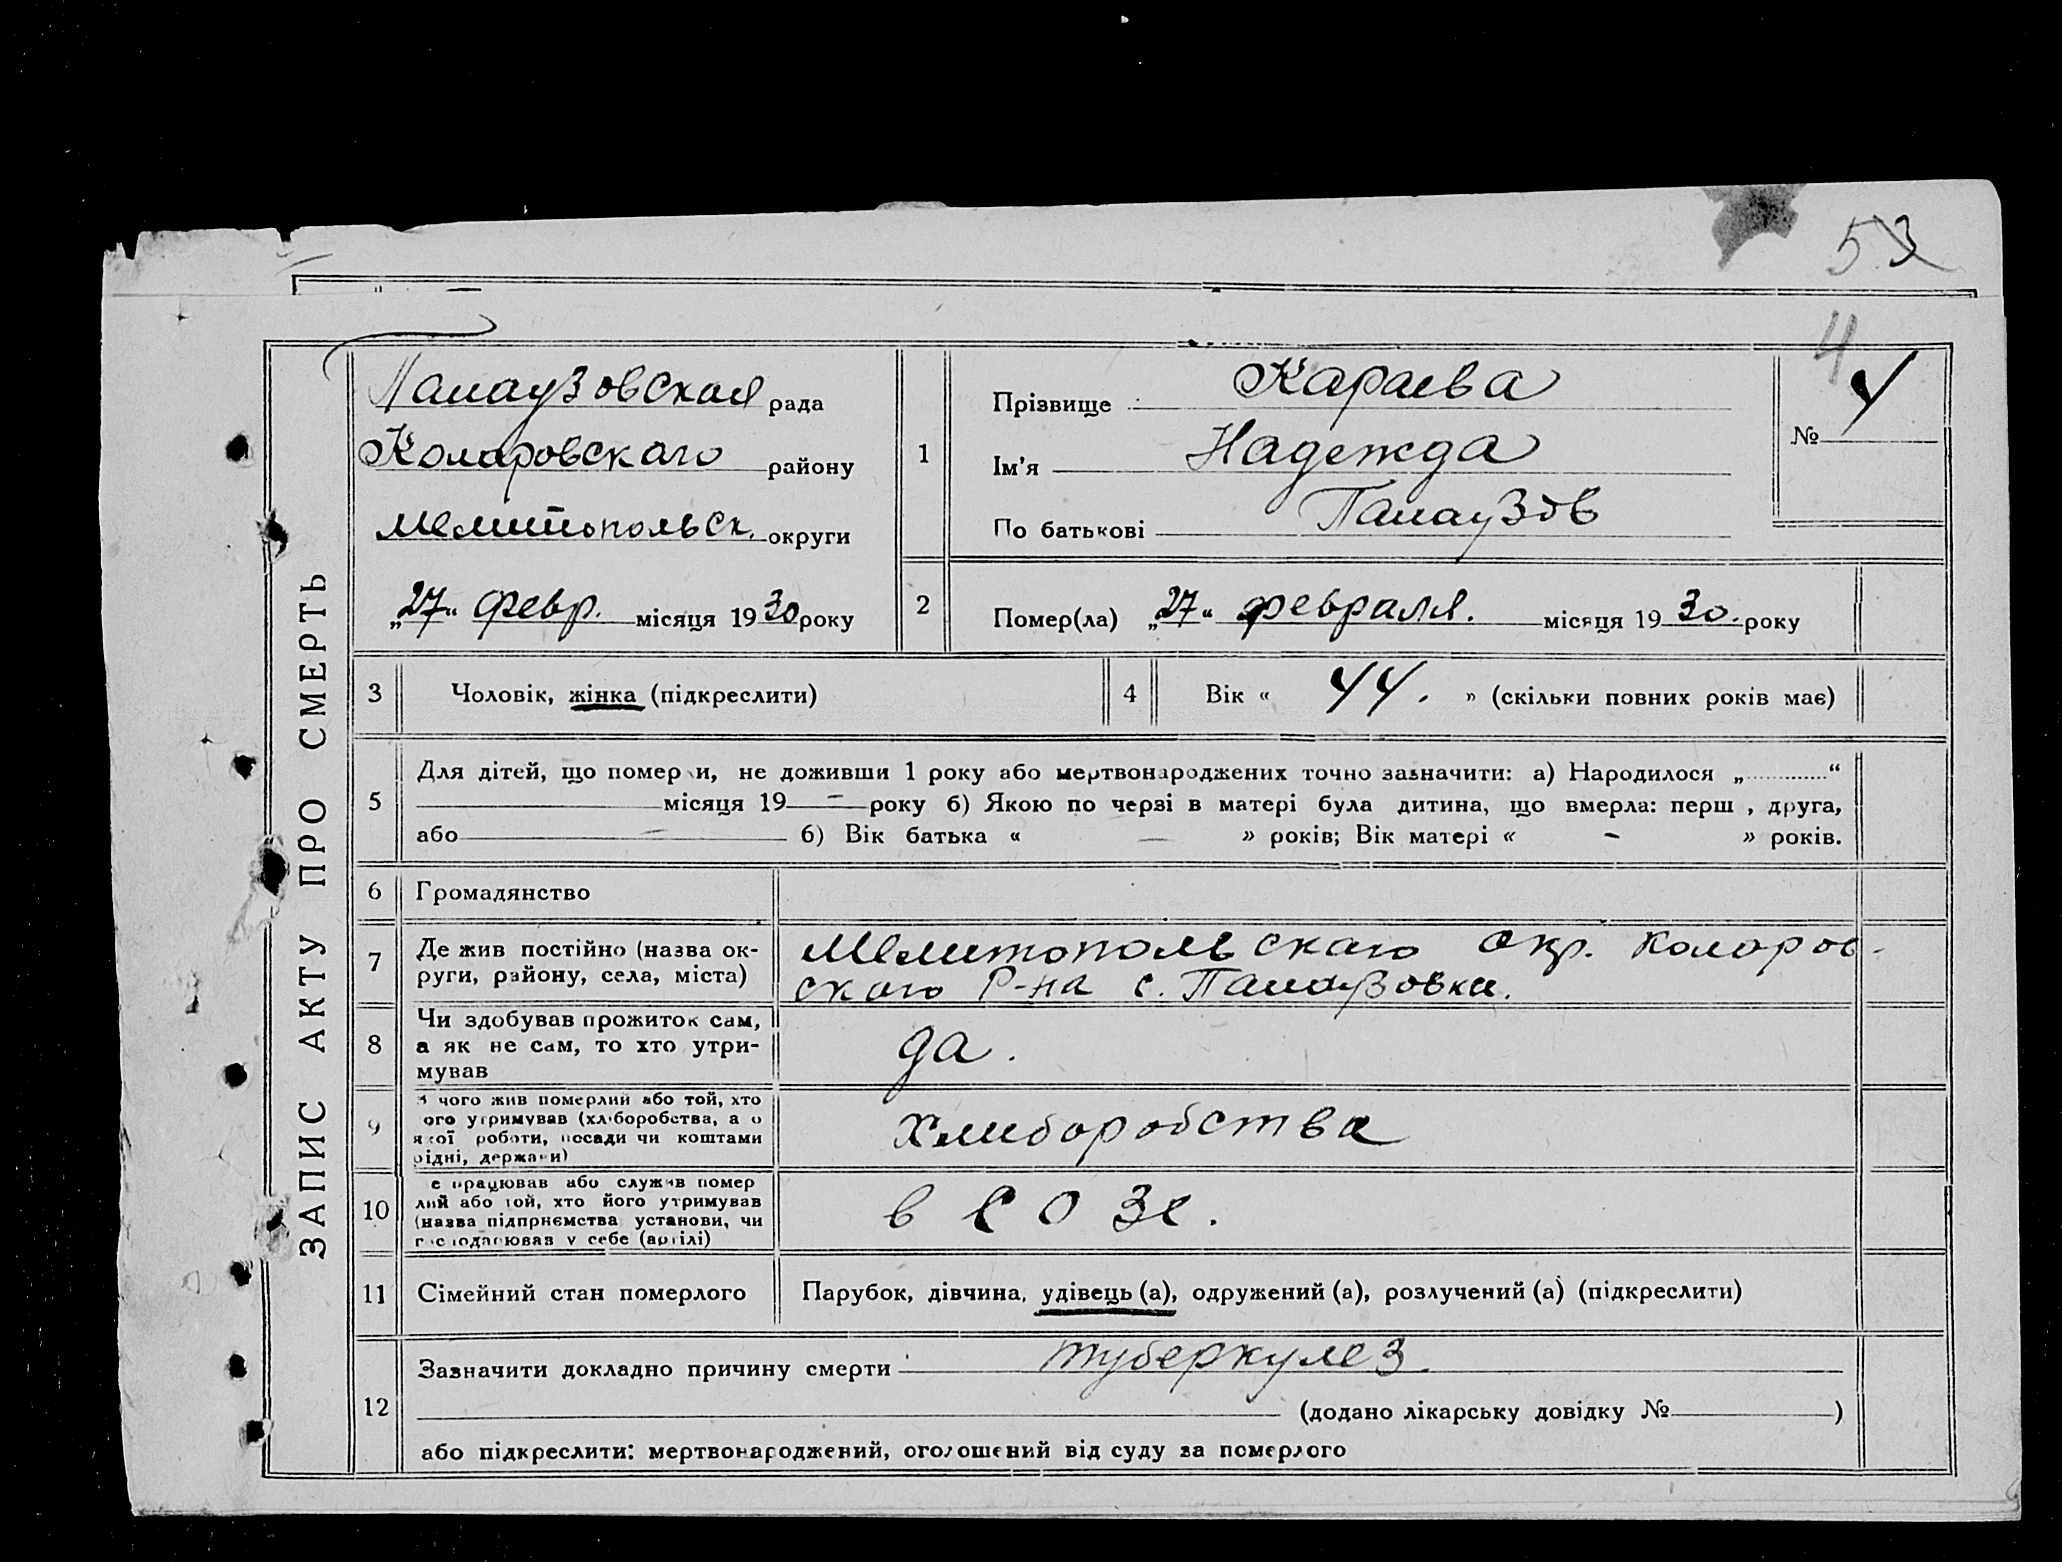 53
4
ЗАПИС АКТУ ПРО СМЕРТЬ
Панаузовская рада
Коларовскаго району
Мелитопольск. округи
„27“ февр. місяця 1930 року
1
Прізвище Караева
Ім’я Надежда
По батькові Панаузов
№ 4
2
Помер(ла) „27“ февраля. місяця 1930. року
3 Чоловік, жінка (підкреслити)
4 Вік « 44. » (скільки повних років має)
5
Для дітей, що померли, не доживши 1 року або мертвонароджених точно зазначити: а) Народилося „ “
місяця 19 — року б) Якою по черзі в матері була дитина, що вмерла: перш , друга,
або — б) Вік батька « — » років; Вік матері « - » років.
6 Громадянство
7 Де жив постійно (назва ок-
руги, району, села, міста)
Мелитопольскаго окр. Коларов-
скаго р-на с. Панаузовка.
8 Чи здобував прожиток сам,
а як не сам, то хто утри-
мував
да.
9 З чого жив померлий або той, хто
ого утримував (хліборобства, а о
якої роботи, посади чи коштами
рідні, держави)
Хлиборобства
10 е працював або служив помер
лий або той, хто його утримував
(назва підприємства установи, чи
господарював у себе (артілі)
в СОЗе.
11 Сімейний стан померлого
Парубок, дівчина, удівець (а), одружений (а), розлучений (а) (підкреслити)
12
Зазначити докладно причину смерти туберкулез.
(додано лікарську довідку № )
або підкреслити: мертвонароджений, оголошений від суду за померлого